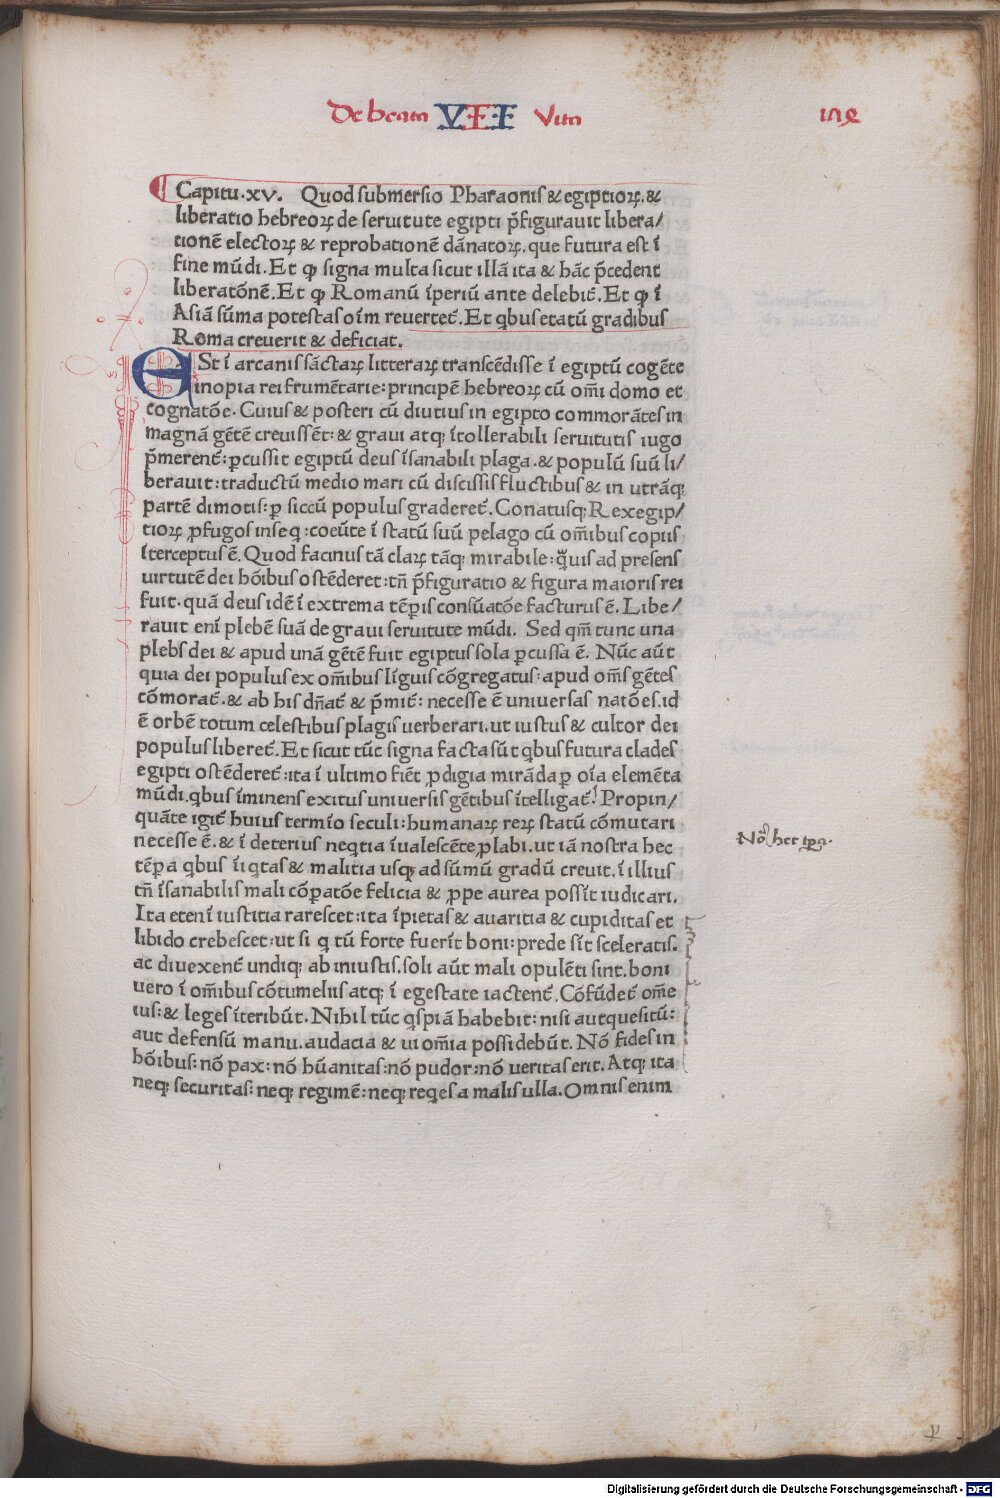 De beata VII Vita
Capitu.xv. Quod submersio Pharaonis & egiptioꝝ.&
liberatio hebreoꝝ de seruitute egipti p̄figurauit libera/
tionē electoꝝ & reprobationē dānatoꝝ.que futura est ī
fine mūdi.Et ꝙ signa multa sicut illā ita & hāc p̄cedent
liberatōnē.Et ꝙ Romanū īperiū ante delebit̄.Et ꝙ ī
Asiā sūma potestas oīm reuertet̄.Et qbus etatū gradibus
Roma creuerit & deficiat.
ESt ī arcanis sāctaꝝ litteraꝝ transcēdisse ī egiptū cogēte
inopia rei frumētarie:principē hebreoꝝ cū om̄i domo et
cognatōe.Cuius & posteri cū diutius in egipto commorātes in
magnā gētē creuissēt:& graui atqꝫ ītollerabili seruitutis iugo
p̄merent̄:ꝑcussit egiptū deus īsanabili plaga.& populū suū li/
berauit:traductū medio mari cū discissis fluctibus & in utrāqꝫ
partē dimotis:ꝑ siccū populus graderet̄.Conatusqꝫ Rex egip/
tioꝝ ꝓfugos insequi:coeūte ī statū suū pelago cū om̄ibus copiis
īterceptus ē.Quod facinus tā claꝝ tāqꝫ mirabile:q̄uis ad presens
uirtutē dei hōibus ostēderet:tn̄ p̄figuratio & figura maioris rei
fuit.quā deus idē ī extrema tēꝑis consūatōe facturus ē.Libe/
rauit enī plebē suā de graui seruitute mūdi. Sed qm̄ tunc una
plebs dei & apud unā gētē fuit egiptus sola ꝑcussa ē. Nūc aūt
quia dei populus ex om̄ibus līguis cōgregatus:apud om̄s gētes
cōmorat̄.& ab his dn̄at̄ & p̄mit̄:necesse ē uniuersas natōes.id
ē orbē totum celestibus plagis uerberari.ut iustus & cultor dei
populus liberet̄.Et sicut tūc signa facta sūt qbus futura clades
egipti ostēderet̄:ita ī ultimo fiēt ꝓdigia mirāda ꝑ oīa elemēta
mūdi.qbus īminens exitus uniuersis gētibus ītelligat̄.Propin/
quāte igit̄ huius termīo seculi:humanaꝝ reꝝ statū cōmutari
necesse ē.& ī deterius neqtia īualescēte ꝓlabi.ut iā nostra hec
tēꝑa qbus īiqtas & malitia usqꝫ ad sūmū gradū creuit.ī illius
tn̄ īsanabilis mali cōꝑatōe felicia & ꝓpe aurea possīt iudicari.
Ita etenī iustitia rarescet:ita īpietas & auaritia & cupiditas et
libido crebescet:ut si q tū forte fuerīt boni:prede sīt sceleratis.
ac diuexent̄ undiqꝫ ab iniustis.soli aūt mali opulēti sint.boni
uero ī om̄ibus cōtumeliis atqꝫ ī egestate iactent̄.Cōfūdet̄ om̄e
ius:& leges īteribūt.Nihil tūc qspiā habebit:nisi aut quesitū:
aut defensū manu.audacia & ui om̄ia possidebūt.Nō fides in
hōibus:nō pax:nō hūanitas:nō pudor:nō ueritas erit.Atqꝫ ita
neqꝫ securitas:neqꝫ regimē:neqꝫ reqes a malis ulla.Omnis enim